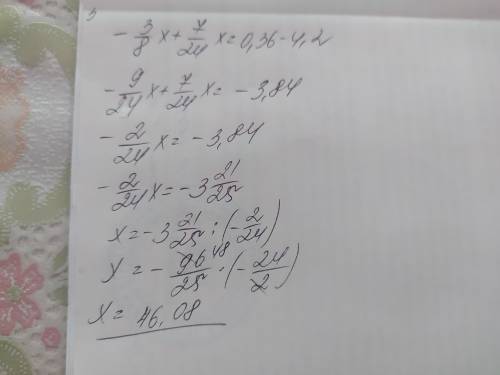 -3/8 x + 7/24 x = 0,36 - 4,2
-9/24 x + 7/24 x = -3,84
-2/24 x = -3,84
-2/24 x = -3 21/25
x = -3 21/25 : (-2/24)
x = -96/25 48 · (-24/2)
x = 46,08